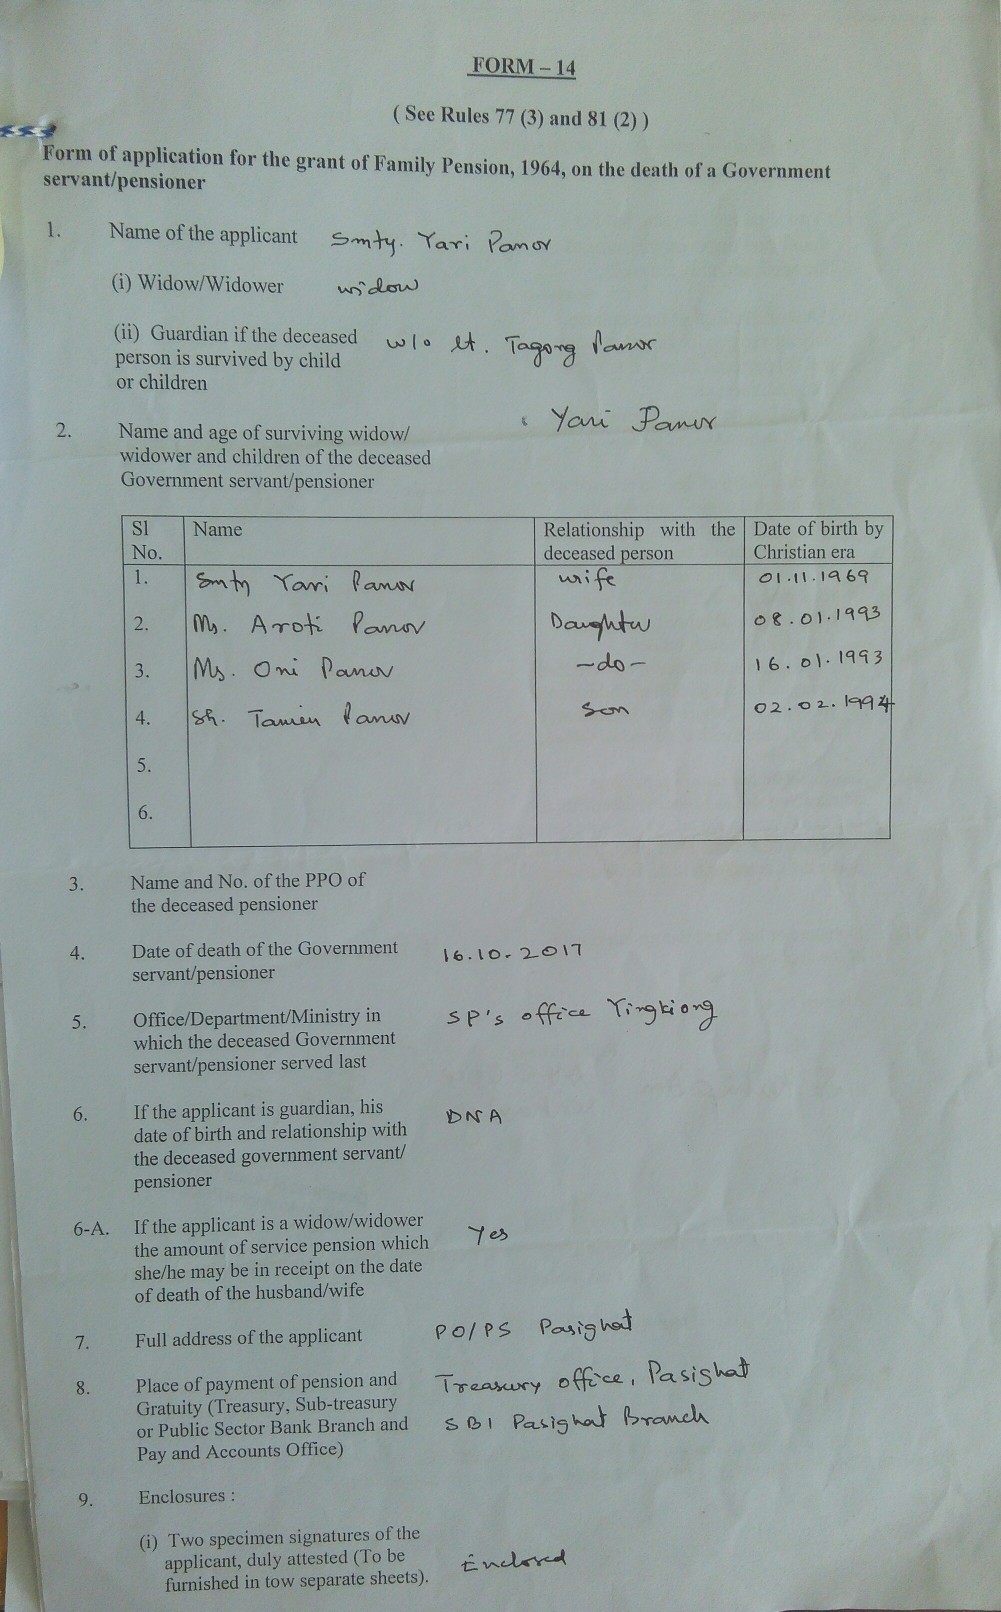 FORM – 14
( See Rules 77 (3) and 81 (2) )
Form of application for the grant of Family Pension, 1964, on the death of a Government
servant/pensioner
1. Name of the applicant Smty. Yari Panor
(i) Widow/Widower widow
(ii) Guardian if the deceased w/o Lt. Tagong Panor
person is survived by child
or children
Yari Panor
2. Name and age of surviving widow/
widower and children of the deceased
Government servant/pensioner
Sl Name Relationship with the Date of birth by
No. deceased person Christian era
1. Smty Yari Panor wife 01.11.1969
2. Ms. Aroti Panor Daughter 08.01.1993
3. Ms. Oni Panor -do- 16.01.1993
4. Sh. Tamien Panor Son 02.02.1994
5.
6.
3. Name and No. of the PPO of
the deceased pensioner
4. Date of death of the Government 16.10.2017
servant/pensioner
5. Office/Department/Ministry in SP's office Yingkiong
which the deceased Government
servant/pensioner served last
6. If the applicant is guardian, his DNA
date of birth and relationship with
the deceased government servant/
pensioner
6-A. If the applicant is a widow/widower Yes
the amount of service pension which
she/he may be in receipt on the date
of death of the husband/wife
7. Full address of the applicant PO/PS Pasighat
8. Place of payment of pension and Treasury office, Pasighat
Gratuity (Treasury, Sub-treasury
or Public Sector Bank Branch and SBI Pasighat Branch
Pay and Accounts Office)
9. Enclosures :
(i) Two specimen signatures of the
applicant, duly attested (To be Enclosed
furnished in tow separate sheets).